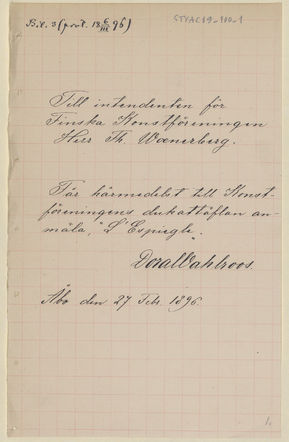 Bil. 3 (prot. 18 6/III 96)
STYAC19-100-1
Till intendenten för
Finska Konstföreningen
Herr Th. Waenerberg.
Får härmedelst till Konst-
föreningens dukattäflan an-
mäla, "L'Espiegle".
Dora Wahlroos
Åbo den 27 Febr. 1896.
1.